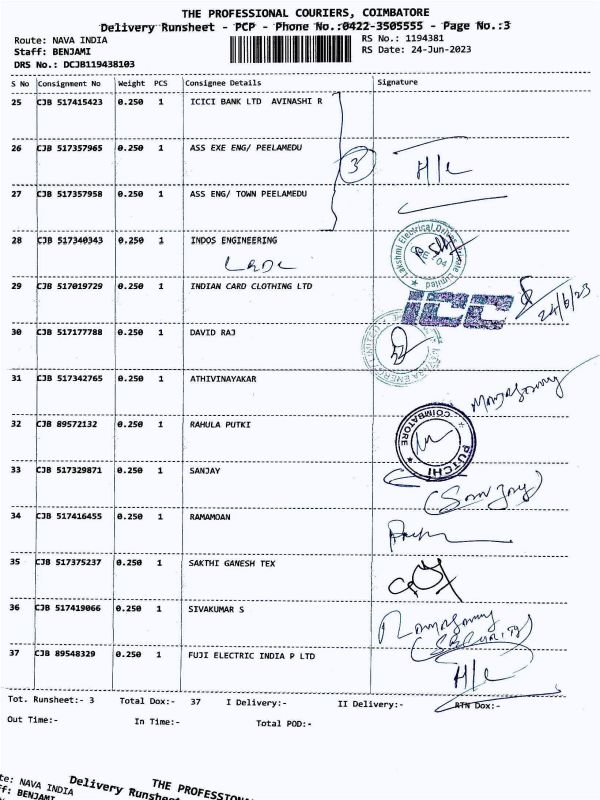 THE PROFESSIONAL COURIERS, COIMBATORE
Delivery Runsheet - PCP - Phone No.:0422-3505555 - Page No.:3
Route: NAVA INDIA
RS No.: 1194381
Staff: BENJAMI
RS Date: 24-Jun-2023
DRS No.: DCJB119438103
S No Consignment No Weight PCS Consignee Details Signature
25 CJB 517415423 0.250 1 ICICI BANK LTD AVINASHI R
26 CJB 517357965 0.250 1 ASS EXE ENG/ PEELAMEDU
3
H/L
27 CJB 517357958 0.250 1 ASS ENG/ TOWN PEELAMEDU
28 CJB 517340343 0.250 1 INDOS ENGINEERING
Lakshmi Electrical Drives Private Limited
CBE
04
29 CJB 517019729 0.250 1 INDIAN CARD CLOTHING LTD
ICC
24/6/23
30 CJB 517177788 0.250 1 DAVID RAJ
31 CJB 517342765 0.250 1 ATHIVINAYAKAR
32 CJB 89572132 0.250 1 RAHULA PUTKI
COIMBATORE
PUTCHI
33 CJB 517329871 0.250 1 SANJAY
34 CJB 517416455 0.250 1 RAMAMOAN
35 CJB 517375237 0.250 1 SAKTHI GANESH TEX
36 CJB 517419066 0.250 1 SIVAKUMAR S
37 CJB 89548329 0.250 1 FUJI ELECTRIC INDIA P LTD
H/L
Tot. Runsheet:- 3 Total Dox:- 37 I Delivery:- II Delivery:- RTN Dox:-
Out Time:- In Time:- Total POD:-
THE PROFESSIONA
Delivery Runshee
te: NAVA INDIA
ff: BENJAMI